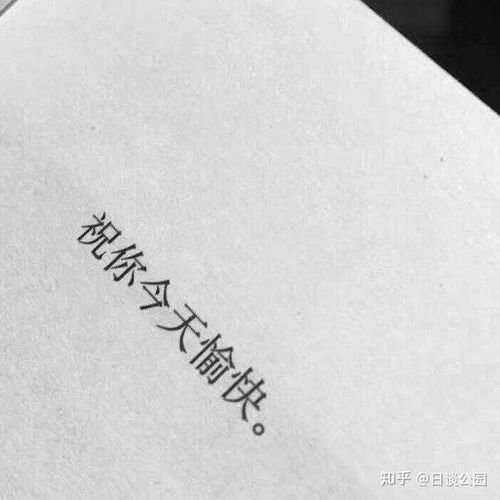 祝你今天愉快。
知乎 @日谈公园